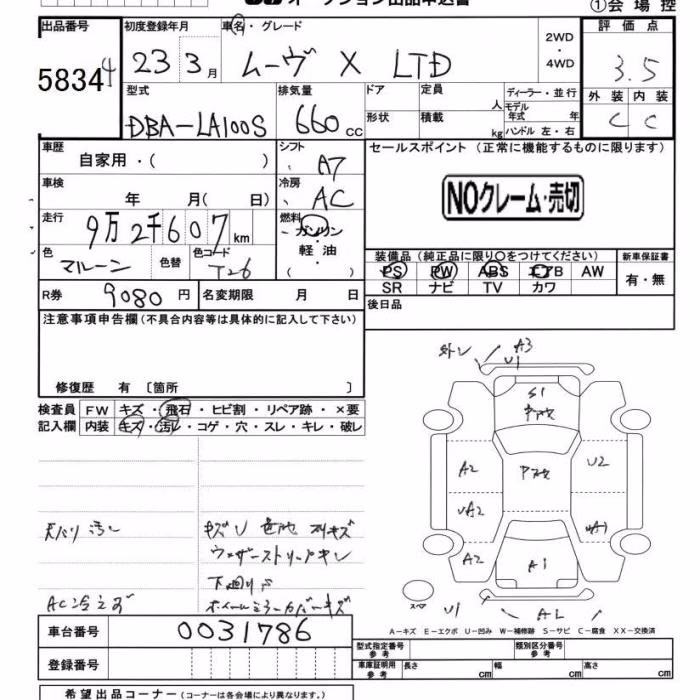 オークション出品申込書
①会場控
出品番号 初度登録年月 車名・グレード 2WD・4WD 評価点
58344 23 3月 ムーヴ X LTD 3.5
型式 排気量 ドア 定員 人 ディーラー・並行 外装 内装
DBA-LA100S 660cc 形状 積載 kg モデル年式 年 ハンドル 左・右 C C
車歴 自家用・( ) シフト A7 セールスポイント (正常に機能するものに限ります)
車検 年 月( 日) 冷房 AC NOクレーム・売切
走行 9万2千607km 燃料 ガソリン・軽油 ( )
色 マルーン 色替 色コード T26 装備品 (純正品に限り○をつけてください) 新車保証書
PS PW ABS エアB AW 有・無
SR ナビ TV カワ
R券 9080円 名変期限 月 日 後日品
注意事項申告欄 (不具合内容等は具体的に記入して下さい)
修復歴 有 〔箇所 〕
検査員 FW キズ・飛石・ヒビ割・リペア跡・×要
記入欄 内装 キズ・汚レ・コゲ・穴・スレ・キレ・破レ
外レ U1 A3
S1
A2 U2
UA2 UA1
A2 A1
スペア U1 AL
天バリ汚レ
AC冷えず
ウェザーストリップキレ
下廻りサビ
ホイール ミラーカバーキズ
A-キズ E-エクボ U-凹み W-補修跡 S-サビ C-腐食 XX-交換済
車台番号 0031786
型式指定番号 参考 類別区分番号 参考
登録番号 車庫証明用 参考 長さ cm 幅 cm 高さ cm
希望出品コーナー (コーナーは各会場により異なります。)